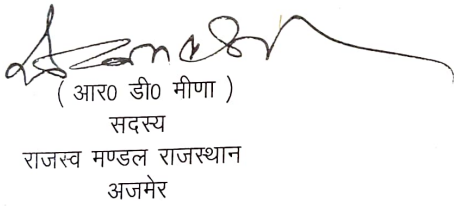 ( आर0 डी0 मीणा )
सदस्य
राजस्व मण्डल राजस्थान
अजमेर